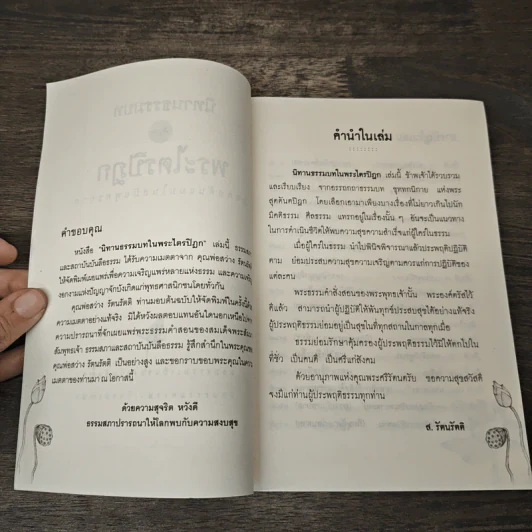 คำขอบคุณ
หนังสือ "นิทานธรรมบทในพระไตรปิฎก" เล่มนี้ ธรรมสภา
และสถาบันบันลือธรรม ได้รับความเมตตาจาก คุณพ่อสว่าง รัตนรัตติ
ให้จัดพิมพ์เผยแพร่เพื่อความเจริญแพร่หลายแห่งธรรม และความเจริญ
งอกงามแห่งปัญญาจักบังเกิดแก่พุทธศาสนิกชนโดยทั่วกัน
คุณพ่อสว่าง รัตนรัตติ ท่านมอบต้นฉบับให้จัดพิมพ์ในครั้งนี้
ความเมตตาอย่างแท้จริง มิได้หวังผลตอบแทนอันใดนอกเหนือไปจาก
ความปรารถนาที่จักเผยแพร่พระธรรมคำสอนของสมเด็จพระสัมมา
สัมพุทธเจ้า ธรรมสภาและสถาบันบันลือธรรม รู้สึกสำนึกในพระคุณของ
คุณพ่อสว่าง รัตนรัตติ เป็นอย่างสูง และขอกราบขอบพระคุณในความ
เมตตาของท่านมา ณ โอกาสนี้
ด้วยความสุจริต หวังดี
ธรรมสภาปรารถนาให้โลกพบกับความสงบสุข
คำนำในเล่ม
นิทานธรรมบทในพระไตรปิฎก เล่มนี้ ข้าพเจ้าได้รวบรวม
และเรียบเรียง จากอรรถกถาธรรมบท ขุททกนิกาย แห่งพระ
สุตตันตปิฎก โดยเลือกเอามาเพียงบางเรื่องที่ไม่ยาวเกินไปนัก
มีคติธรรม คือธรรม แทรกอยู่ในเรื่องนั้น ๆ อันจะเป็นแนวทาง
ในการดำเนินชีวิตให้พบความสุขความสำเร็จแก่ผู้ใคร่ในธรรม
เมื่อผู้ใคร่ในธรรม นำไปพินิจพิจารณาแล้วประพฤติปฏิบัติ
ตาม ย่อมประสบความสุขความเจริญตามควรแก่การปฏิบัติของ
แต่ละคน
พระธรรมคำสั่งสอนของพระพุทธเจ้านั้น พระองค์ตรัสไว้
ดีแล้ว สามารถนำผู้ปฏิบัติให้พ้นทุกข์ประสบสุขได้อย่างแท้จริง
ผู้ประพฤติธรรมย่อมอยู่เป็นสุขในที่ทุกสถานในกาลทุกเมื่อ
ธรรมย่อมรักษาคุ้มครองผู้ประพฤติธรรมไว้มิให้ตกไปใน
ที่ชั่ว เป็นคนดี เป็นศรีแก่สังคม
ด้วยอานุภาพแห่งคุณพระศรีรัตนตรัย ขอความสุขสวัสดี
จงมีแก่ท่านผู้ประพฤติธรรมทุกท่าน
ส. รัตนรัตติ